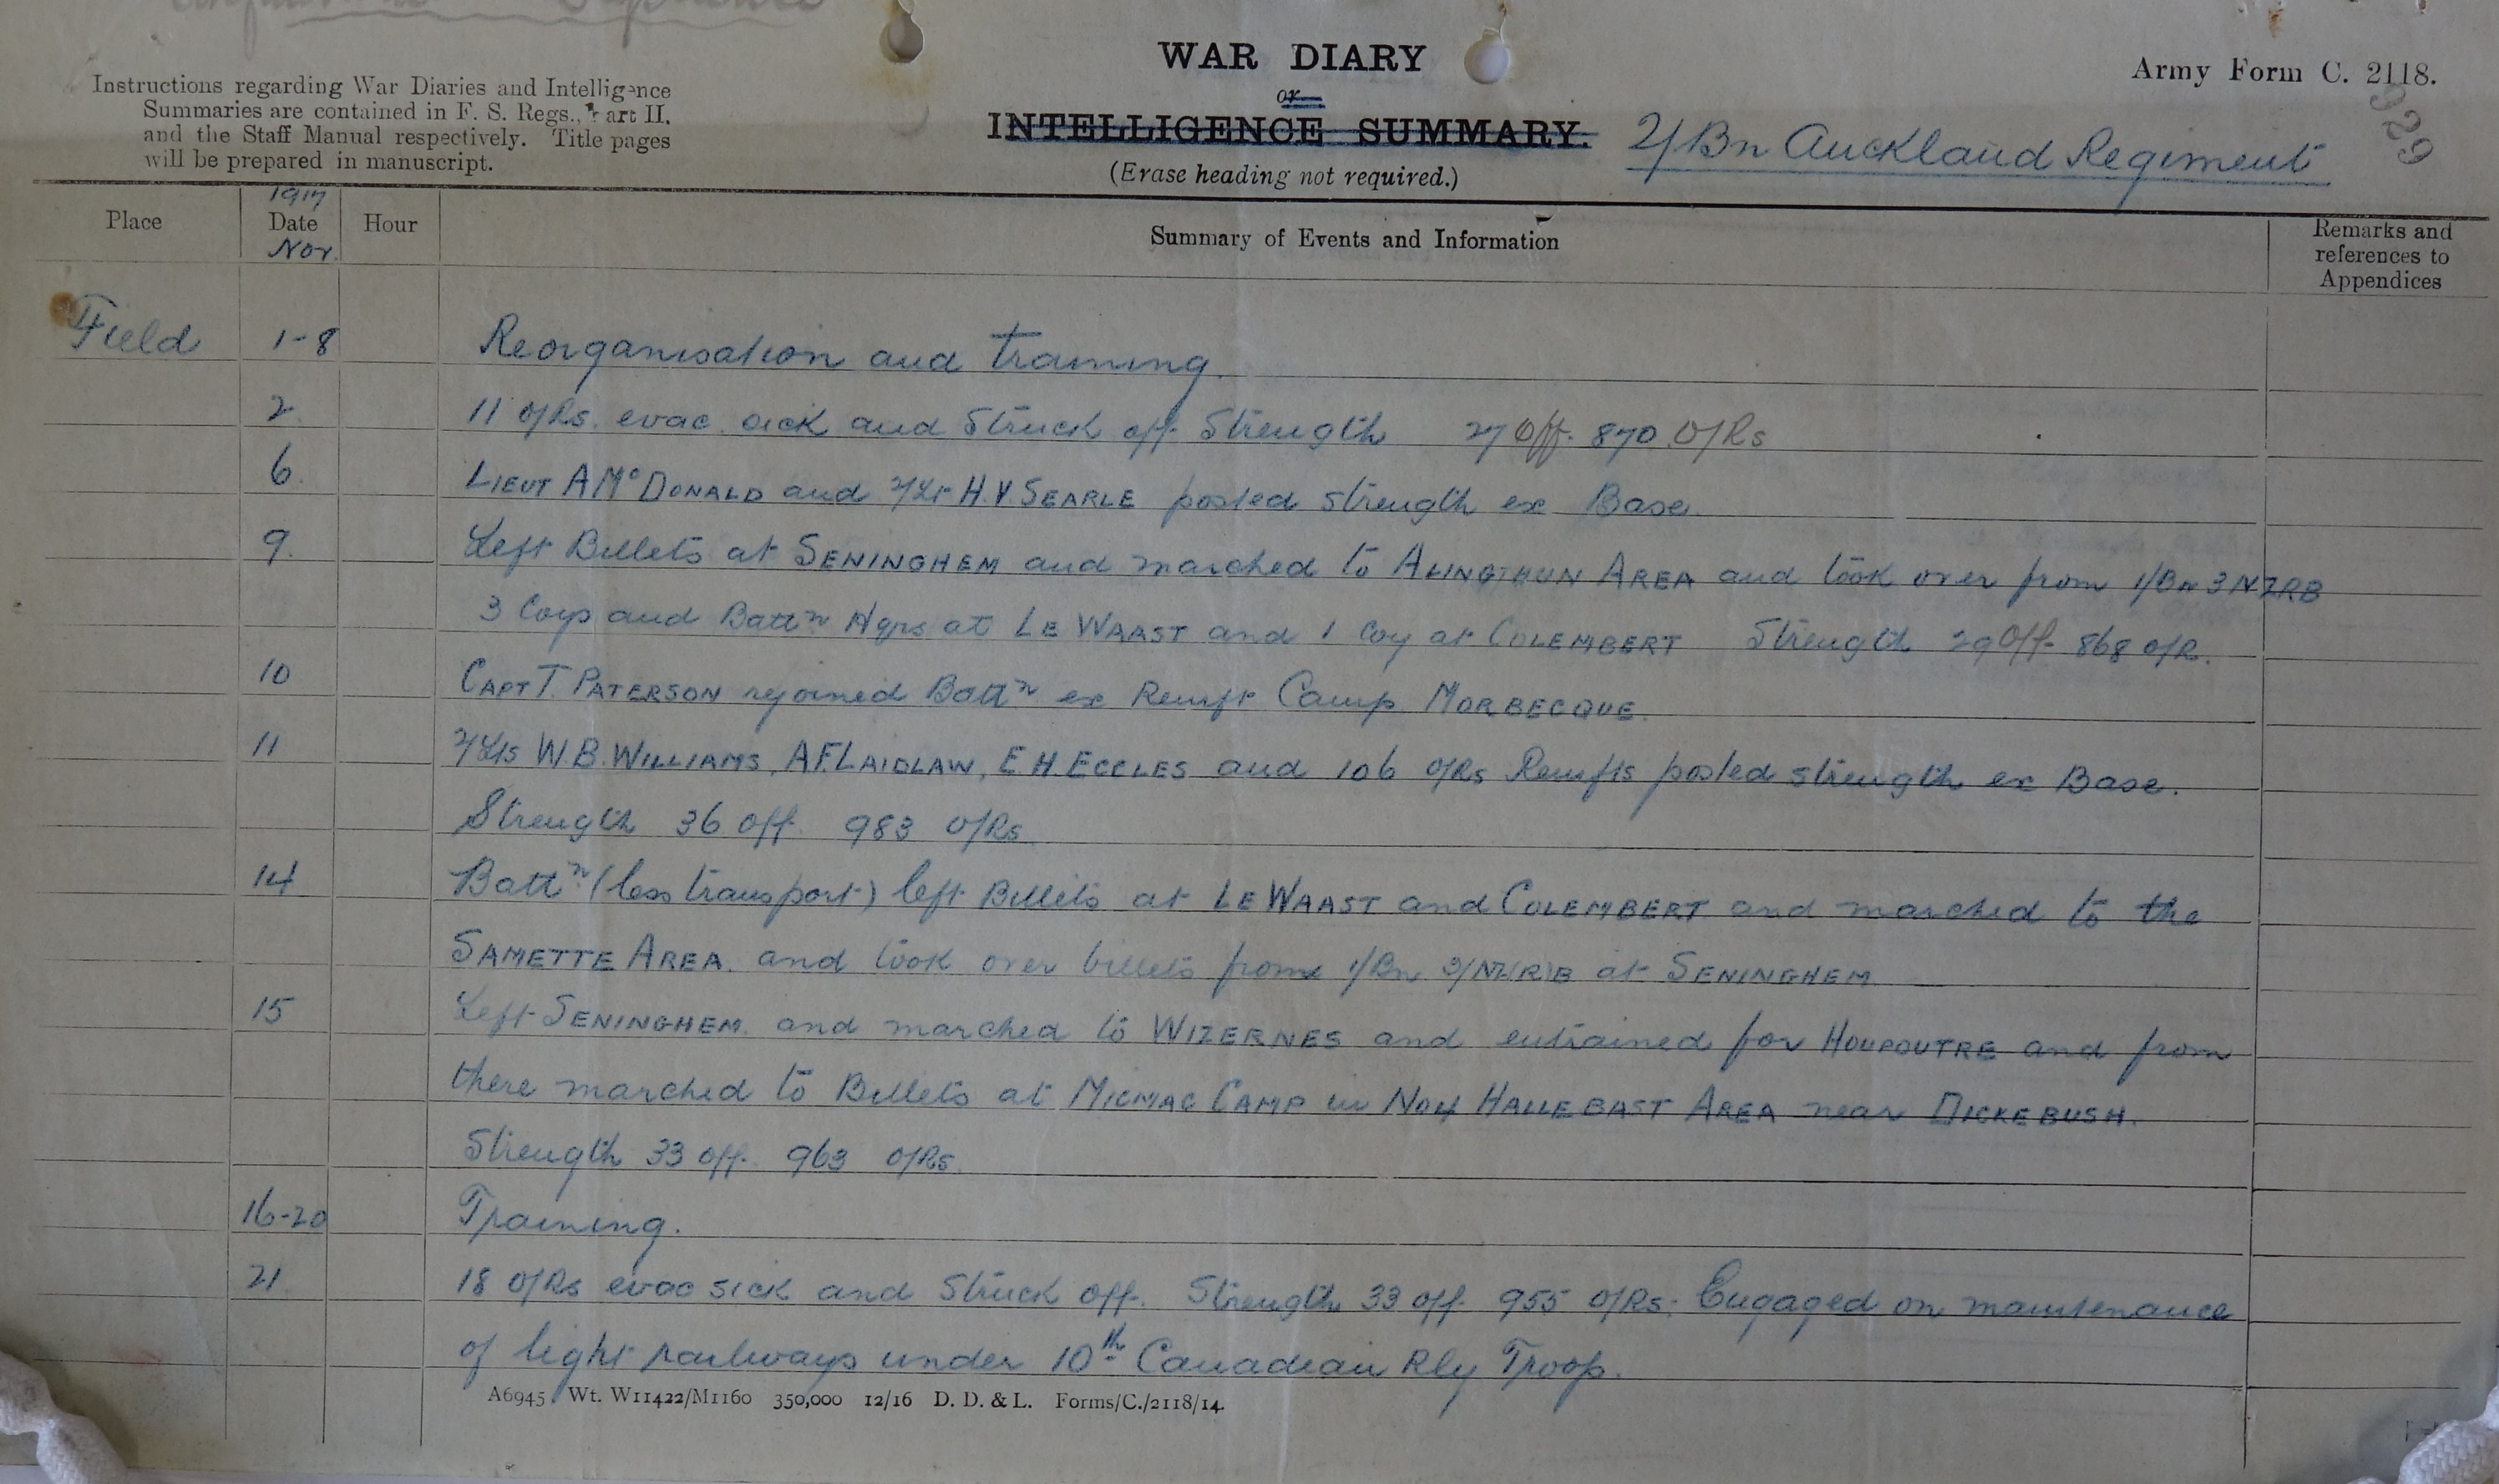 WAR DIARY
or
INTELLIGENCE SUMMARY.
(Erase heading not required.)
Army Form C. 2118.
929
Instructions regarding War Diaries and Intelligence
Summaries are contained in F. S. Regs., Part II.
and the Staff Manual respectively. Title pages
will be prepared in manuscript.
2/Bn Auckland Regiment
Place
1917
Date
Nov.
Hour
Summary of Events and Information
Remarks and
references to
Appendices
Field 1-8 Reorganisation and training.
2. 11 O/Rs. evac. sick and struck off strength 27 Off. 870 O/Rs
6. LIEUT A McDONALD and 2/Lt H.V. SEARLE posted strength ex Base.
9. Left Billets at SENINGHEM and marched to ALINGTHUN AREA and took over from 1/Bn 3 NZRB
3 Coys and Battn Hqrs at LE WAAST and 1 Coy at COLEMBERT Strength 29 Off. 868 O/R.
10 CAPT T. PATERSON rejoined Battn ex Reinft Camp MORBECQUE.
11 2/Lts W.B. WILLIAMS, A.F. LAIDLAW, E.H. ECCLES and 106 O/Rs Reinfts posted strength ex Base.
Strength 36 Off. 983 O/Rs
14 Battn (less transport) left Billets at LE WAAST and COLEMBERT and marched to the
SAMETTE AREA. and took over billets from 1/Bn 3/NZRB at SENINGHEM
15 Left SENINGHEM. and marched to WIZERNES and entrained for HOUPOUTRE and from
there marched to Billets at MICMAC CAMP in No4 HALLEBAST AREA near DICKEBUSH.
Strength 33 off. 963 O/Rs.
16-20 Training.
21. 18 O/Rs evac sick and struck off. Strength 33 off. 955 O/Rs. Engaged on maintenance
of light railways under 10th Canadian Rly Troop.
A6945 Wt. W11422/M1160 350,000 12/16 D. D. & L. Forms/C./2118/14.